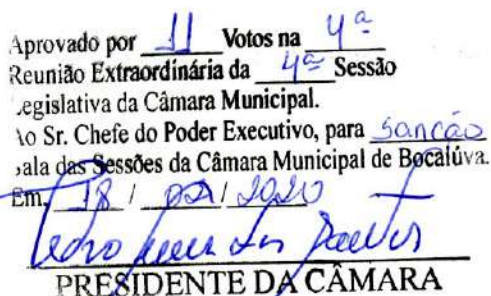 Aprovado por 11 Votos na 4ª
Reunião Extraordinária da 4ª Sessão
Legislativa da Câmara Municipal.
Ao Sr. Chefe do Poder Executivo, para sanção
Sala das Sessões da Câmara Municipal de Bocaiúva.
Em, 18 / 02 / 2020
Pedro
PRESIDENTE DA CÂMARA